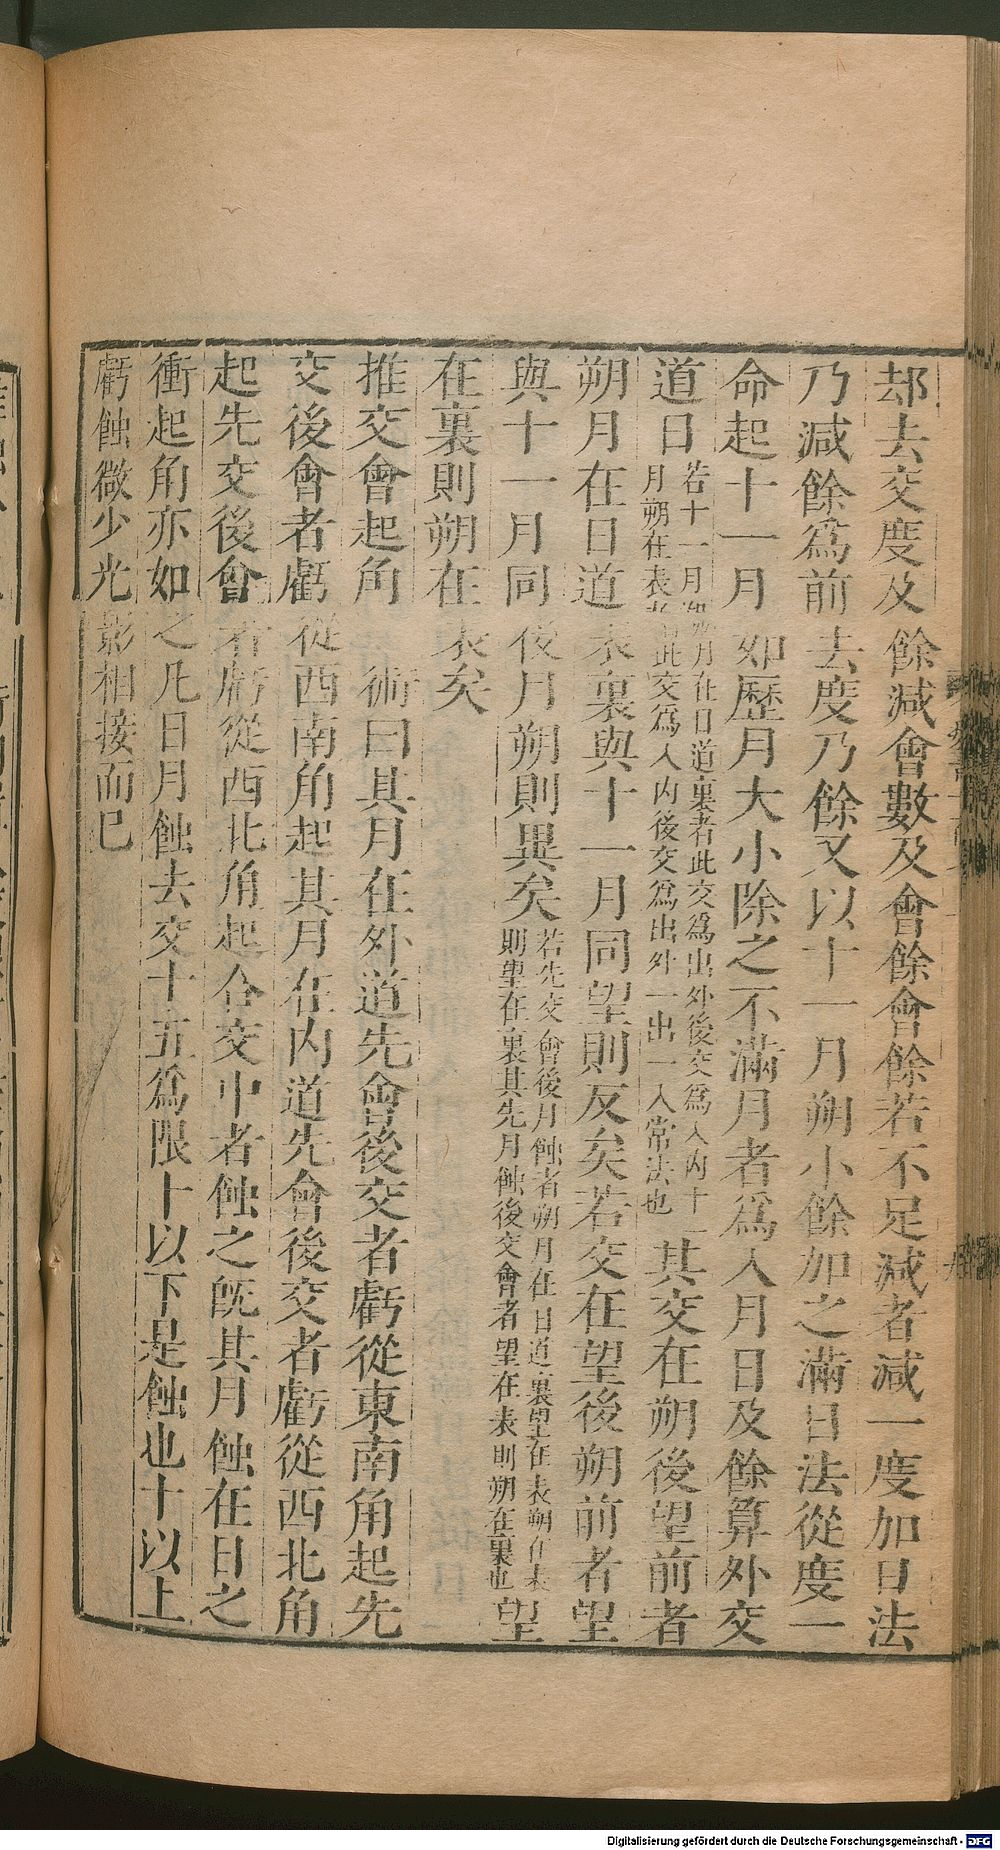 却去交度及餘減會數及會餘會餘若不足減者減一度加日法
乃減餘爲前去度乃餘又以十一月朔小餘加之滿日法從度一
命起十一月如歷月大小除之不滿月者爲入月日及餘算外交
道日
若十一月朔月在日道裏者此交爲出外後交爲入內十一
月朔在表者此交爲入內後交爲出外一出一入常法也
其交在朔後望前者
朔月在日道表裏與十一月同望則反矣若交在望後朔前者望
與十一月同後月朔則異矣
若先交會後月蝕者朔月在日道裏望在表朔在表
則望在裏其先月蝕後交會者望在表則朔在裏也
望
在裏則朔在表矣
推交會起角 術曰其月在外道先會後交者虧從東南角起先
交後會者虧從西南角起其月在內道先會後交者虧從西北角
起先交後會者虧從西北角起合交中者蝕之旣其月蝕在日之
衝起角亦如之凡日月蝕去交十五爲限十以下是蝕也十以上
虧蝕微少光影相接而已
Digitalisierung gefördert durch die Deutsche Forschungsgemeinschaft - DFG